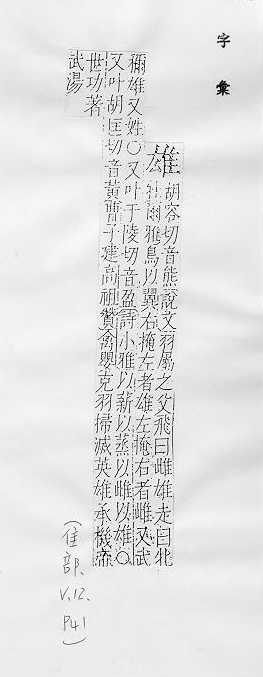 字彙
雄
胡容切音熊說文羽屬之父飛曰雌雄走曰牝
牡爾雅鳥以翼右掩左者雄左掩右者雌又武
稱雄又姓〇又叶于陵切音盈詩小雅以薪以蒸以雌以雄〇
又叶胡匡切音黃曹子建高祖贊禽嬰克羽掃滅英雄承機帝
世功著
武湯
(隹部、V.12. P41)